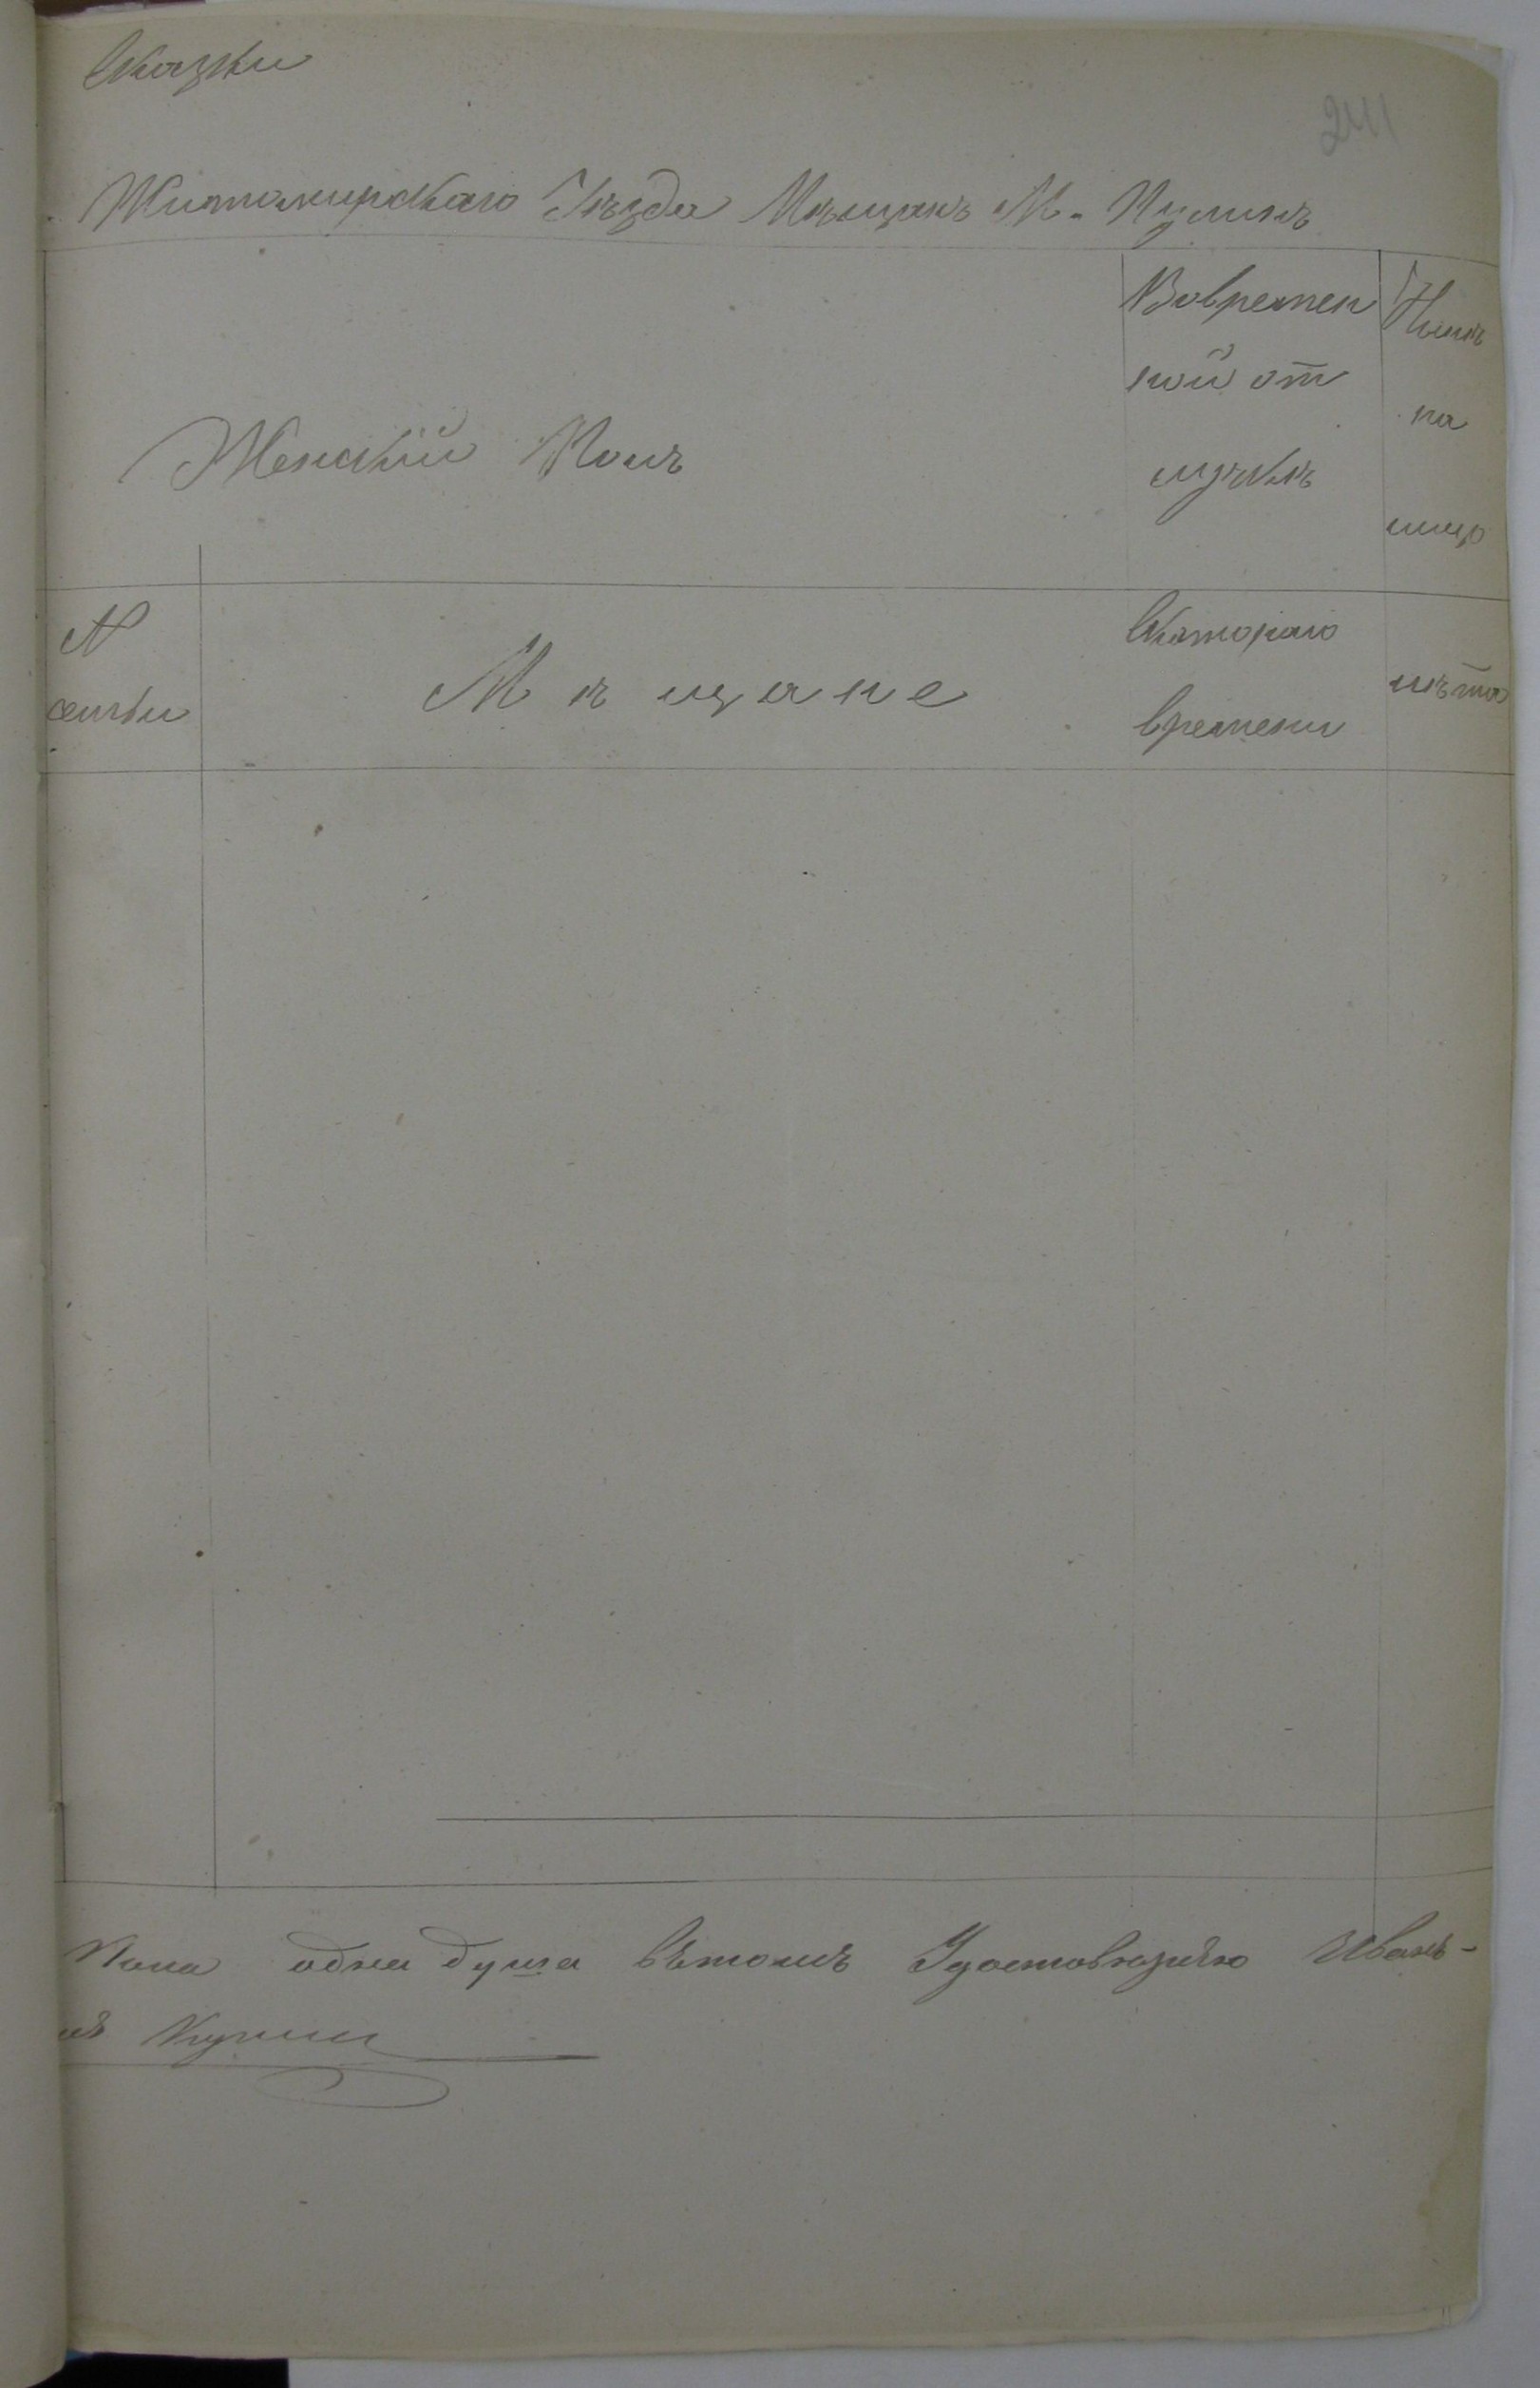 Сказки
241
Житомирскаго Уѣзда Мѣщанъ М. Пулинъ
Женскій Полъ
Вовремен
ной от
лучкѣ
Нынѣ
на
лицо
N
семьи
Мѣщане
Скотораго
времени
лѣта
Пола одна душа вѣтомъ Удостовѣряю Иванъ-